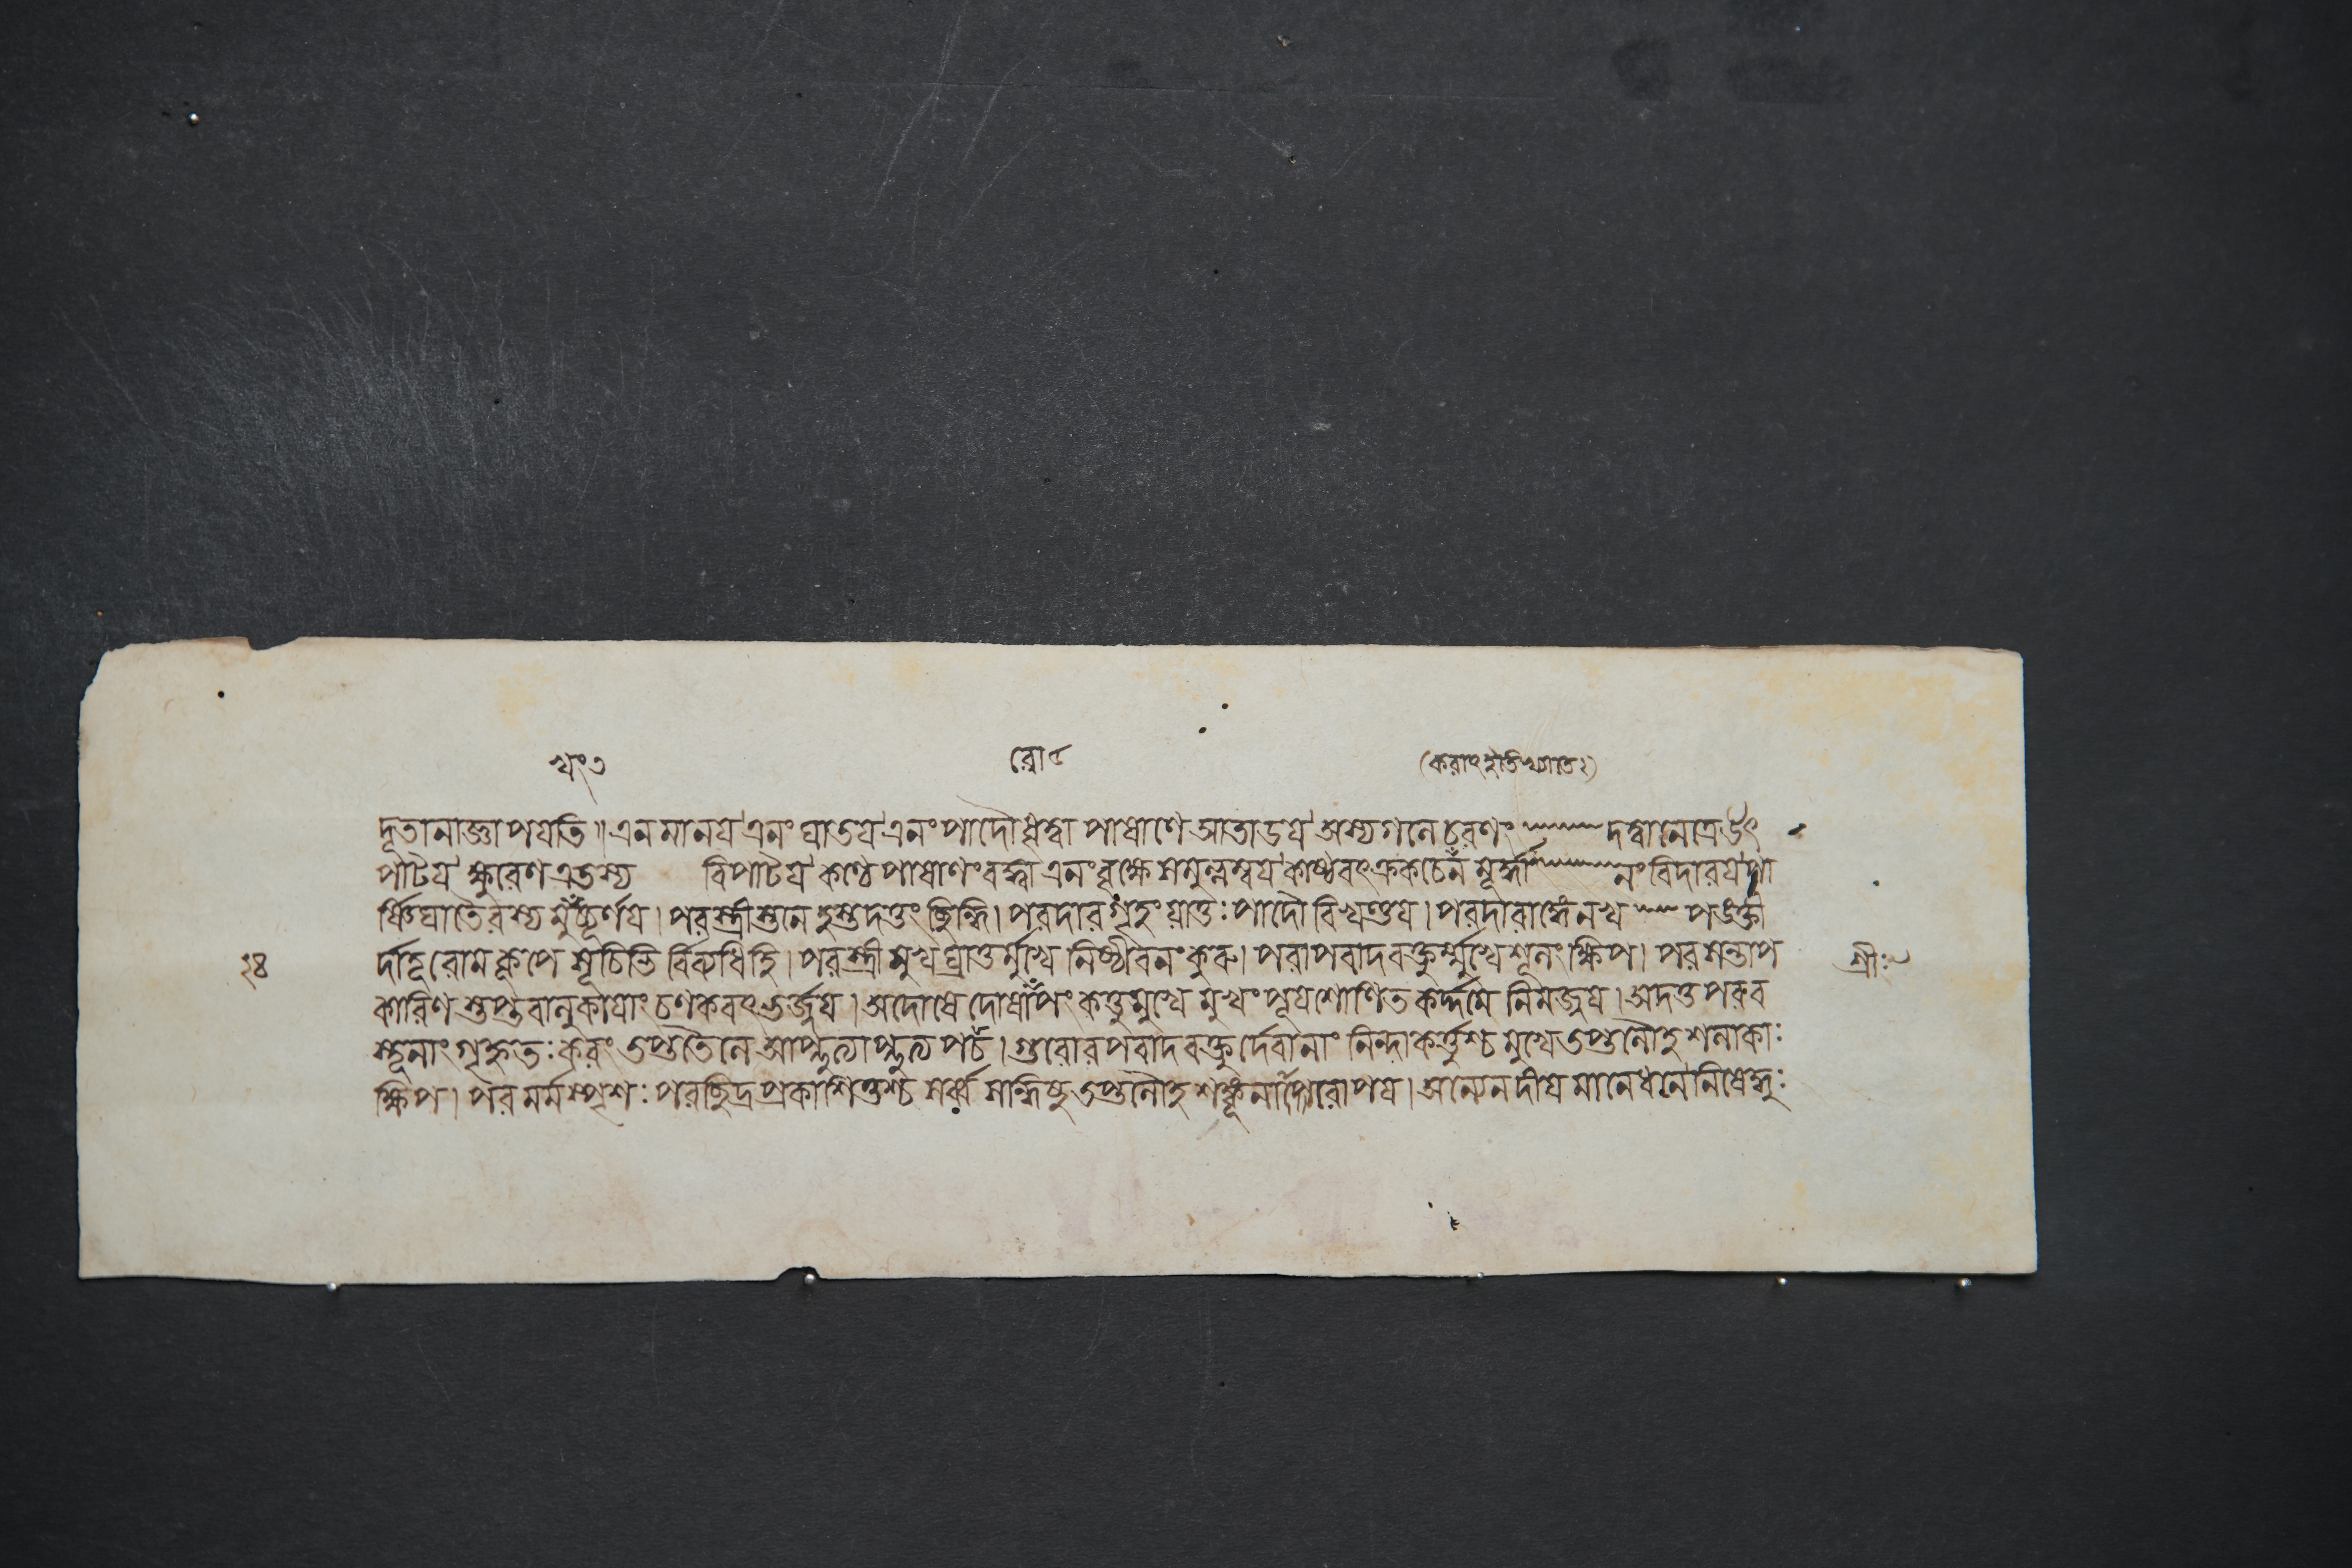 খং৩ রো৫ (করাৎ ইতিখ্যাতঃ)
দূতানাজ্ঞাপযতি॥এনমানয'এনং ঘাতয'এনংপাদৌধৃত্বা পাষাণে আতাডয'অস্যগলে চরণং দত্ত্বানেত্রউৎ
পাটয'ক্ষুরেণএতস্য বিপাটয'কণ্ঠে পাষাণংবদ্ধা এনংবৃক্ষেসমুল্লম্বয'কাষ্ঠবৎক্রকচেন মূর্দ্ধা নংবিদারয'পা
র্ষ্ণিঘাতৈরস্য মুখং চূর্ণয। পরস্ত্রীস্তনে হস্তদত্তং ছিন্ধি। পরদারগৃহং যাতুঃ পাদৌ বিখণ্ডয। পরদারাঙ্গেনখ পঙক্তী
২৪ র্দাতূ রোমকূপে সূচিভি র্বিব্যধিহি। পরস্ত্রীমুখঘ্রাতুর্মুখে নিষ্ঠীবনং কুরু। পরাপবাদবক্তুর্ম্মুখেশূলং ক্ষিপ। পরসন্তাপ শ্রীঃ
কারিণ স্তপ্তবালুকাযাং চণকবৎ ভর্জ্জয। অদোষে দোষারোপং কর্ত্তুমুখে মুখং পূযশোণিত কর্দ্দমে নিমজ্জয। অদত্ত পরব
স্তূনাং গৃহ্নতঃ করং তপ্ততৈলে আপ্লুত্যাপ্লুত্য পচ। গুরোরপবাদবক্তুর্দেবানাং নিন্দাকর্ত্তুশ্চ মুখে তপ্তলৌহশলাকাঃ
ক্ষিপ। পর মর্মস্পৃশঃ পরছিদ্রপ্রকাশিতুশ্চ সর্ব্ব সন্ধিষু তপ্তলৌহ শঙ্কূনারোপয। অন্যেন দীযমানে ধনে নিষেদ্ধুঃ